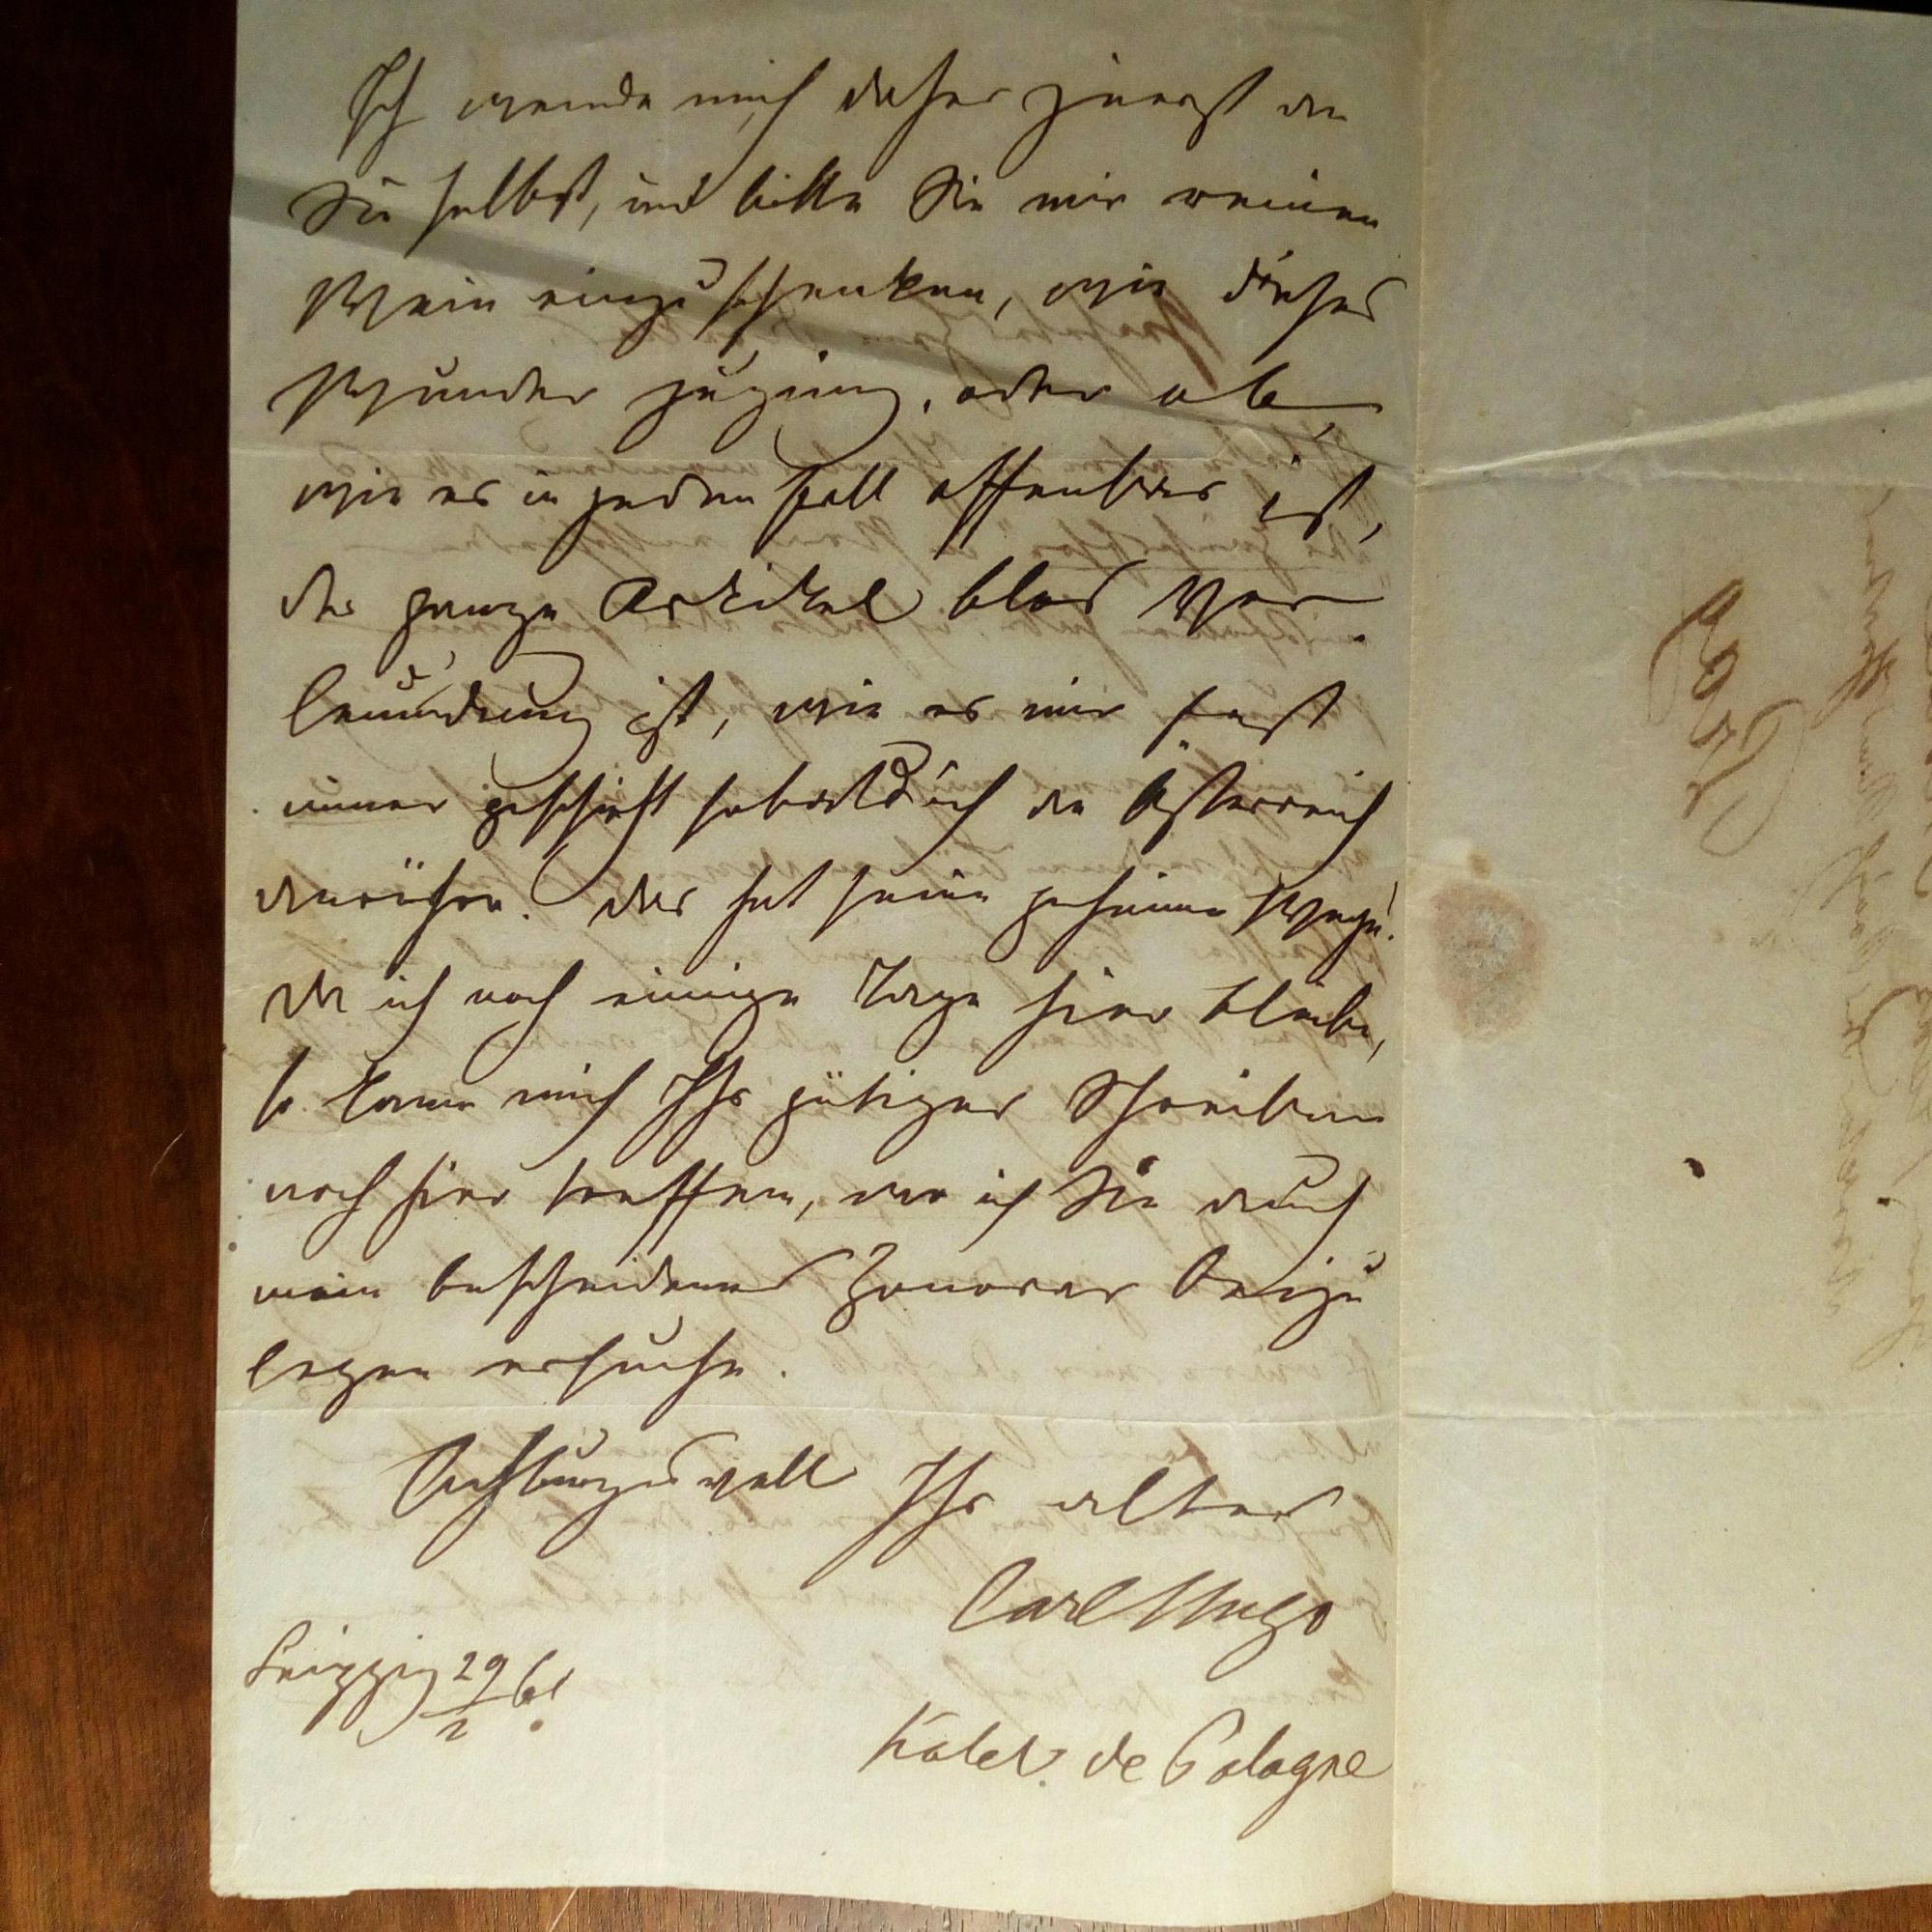 Ich wende mich daher zuerst an
Sie selbst, und bitte Sie mir reinen
Wein einzuschenken, wie dieses
Wunder zuging, oder ob,
wie es in jedem Fall offenbar ist,
der ganze Artikel blos Ver-
leumdung ist, wie es mir fast
immer geschieht sobald ich an Österreich
. Das hat seine geheimen Wege!
Da ich noch einige Tage hier bleibe,
so kann mich Ihr gütiges Schreiben
noch hier treffen, wo ich Sie auch
mein bescheidenes Honorar beizu
legen ersuche.
Achtungsvoll Ihr alter
Carl Hugo
Leipzig 29/2 61
Hotel de Pologne